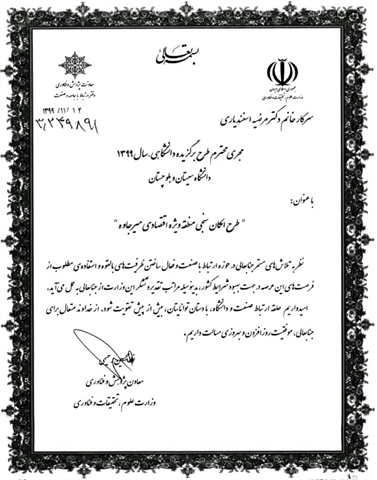 بسمه تعالی
جمهوری اسلامی ایران
وزارت علوم، تحقیقات و فناوری
معاونت پژوهش و فناوری
دفتر ارتباط با جامعه و صنعت
۱۳۹۹/۱۱/۱۲
۳/۲۴۹۸۹۱
سرکار خانم دکتر مرضیه اسفندیاری
مجری محترم طرح برگزیده دانشگاهی، سال ۱۳۹۹
دانشگاه سیستان و بلوچستان
با عنوان:
"طرح امکان سنجی منطقه ویژه اقتصادی میرجاوه"
نظر به تلاش‌های مستمر جنابعالی در حوزه ارتباط با صنعت و فعال ساختن ظرفیت‌های بالقوه و استفاده‌ی مطلوب از
فرصت‌های این عرصه در جهت بهبود شرایط کشور، بدینوسیله مراتب تقدیر و تشکر این وزارت از جنابعالی به عمل می‌آید.
امیدواریم حلقه ارتباط صنعت و دانشگاه، با دستان توانایتان، بیش از پیش تقویت شود. از خداوند متعال برای
جنابعالی، موفقیت روزافزون و بهروزی مسالت داریم.
معاون پژوهش و فناوری
وزارت علوم، تحقیقات و فناوری